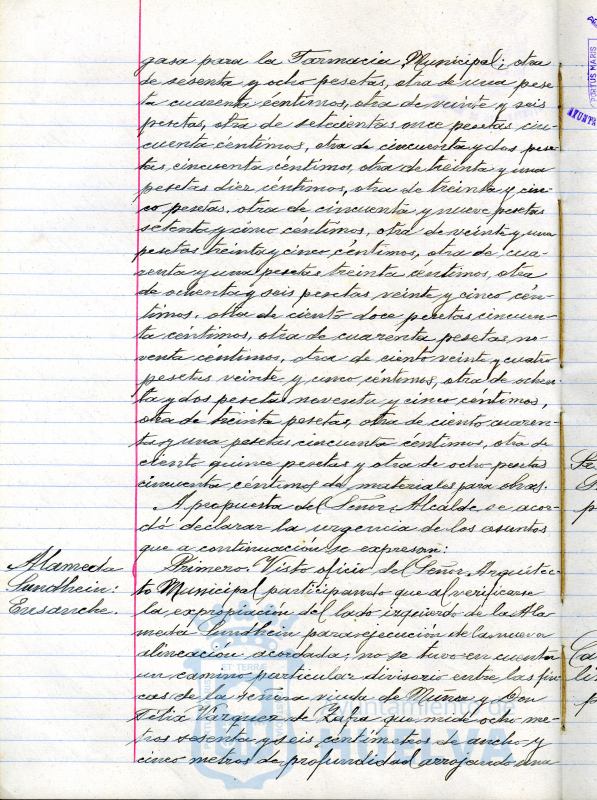 gasa para la Farmacia Municipal; otra
de sesenta y ocho pesetas, otra de una pese
ta cuarenta céntimos, otra de veinte y seis
pesetas, otra de setecientas once pesetas cin-
cuenta centimos, otra de cincuenta y dos pese-
tas, cincuenta céntimos, otra de treinta y una
pesetas diez centimos, otra de treinta y cin-
co pesetas, otra de cincuenta y nueve pesetas
setenta y cinco céntimos, otra de veinte y una
pesetas treinta y cinco céntimos, otra de cua-
renta y una pesetas treinta centimos, otra
de ochenta y seis pesetas veinte y cinco cén-
timos, otra de ciento doce pesetas cincuen-
ta céntimos, otra de cuarenta pesetas no-
venta centimos, otra de ciento veinte y cuatro
pesetas veinte y cinco céntimos, otra de ochen-
ta y dos pesetas noventa y cinco centimos,
otra de treinta pesetas, otra de ciento cuaren-
ta y una pesetas cincuenta céntimos, otra de
ciento quince pesetas y otra de ocho pesetas
cincuenta céntimos de materiales para obras.
A propuesta del Señor Alcalde se acor-
dó declarar la urgencia de los asuntos
que a continuación se expresan:
Alameda
Sundhein:
Ensanche.
Primero. Visto oficio del Señor Arquitec-
to Municipal participando que al verificarse
la expropiación del lado izquierdo de la Ala
meda Sundhein para ejecución de la nueva
alineación acordada, no se tuvo en cuenta
un camino particular divisorio entre las fin-
cas de la Señora viuda de Muñoz y Don
Félix Vázquez de Zafra que mide ocho me-
tros sesenta y seis centímetros de ancho y
cinco metros de profundidad arrojando una
ET TERRAE
Ayuntamiento de
HUELVA
PORTUS MARIS
AYUNTA